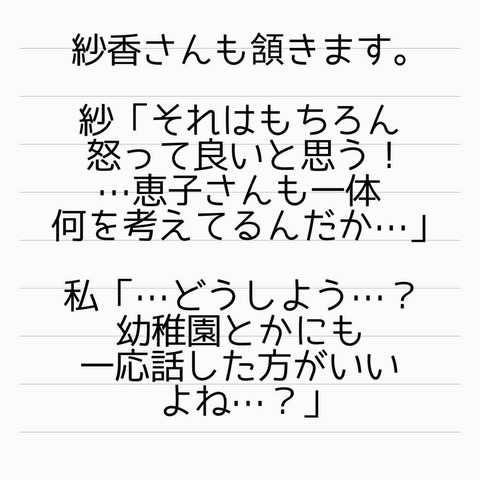 紗香さんも頷きます。
紗「それはもちろん
怒って良いと思う！
…恵子さんも一体
何を考えてるんだか…」
私「…どうしよう…？
幼稚園とかにも
一応話した方がいい
よね…？」